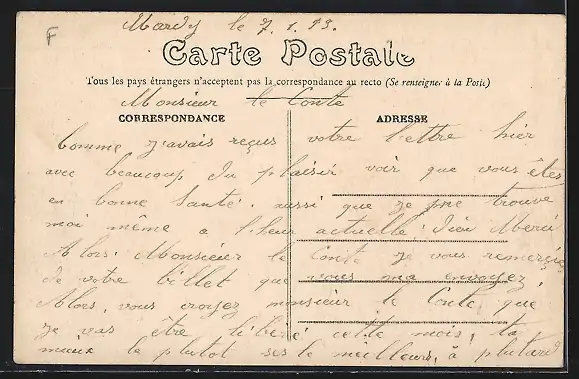 F
Mardy le 7.1.13.
Carte Postale
Tous les pays étrangers n'acceptent pas la correspondance au recto (Se renseigner à la Poste)
Monsieur le Conte
CORRESPONDANCE ADRESSE
Comme j'avais reçus votre lettre hier
avec beaucoup du plaisir voir que vous êtes
en bonne santé. aussi que je me trouve
moi même a l'heur actuelle Dieu Merci
Alors Monsieur le Conte je vous remerçie
de votre billet que vous ma envoyez,
Alors, vous croyez monsieur le Conte, que,
je vas être liberé cette mois,
mieux le plutot ses le meilleurs, a plutard